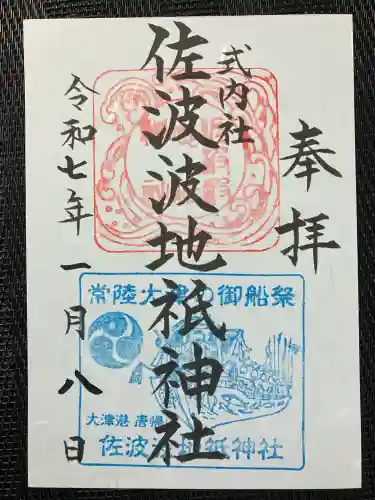 奉拝
式内社
佐波波地祇神社
令和七年一月八日
常陸大津の御船祭
大津港 唐帰
佐波波地祇神社